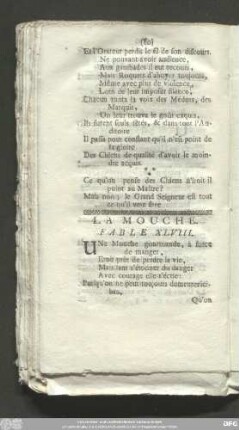 (80)
Et l'Orateur perdit le fil de son discours.
Ne pouvant avoir audience,
Mais Roquets d'aboyer toujours,
Même avec plus de violence,
Loin de leur imposer silence,
Chacun vanta la voix des Médors, des
Marquis,
On leur trouva le goût exquis,
Il passa pour constant qu'il n'est point de
Des Chiens de qualité d'avoir le moin-
dre acquis.
Ce qu'on pense des Chiens
point au Maître?
Mais non; le Grand Seigneur est tout
ce qu'il veut être.
LA MOUCHE.
FABLE XLVIII.
UNe Mouche gourmande, à force
de manger,
Etoit prête de perdre la vie,
Mais loin s'étonner du danger
Avec courage elle s'écrie:
Puisqu'on ne peut toujours demeurer ici-
bas,
Qu'on